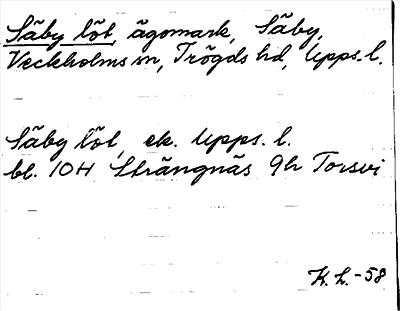 Säby löt, ägomark, Säby,
Veckholms sn, Trögds hd, Upps. l.
Säby löt, ek. Upps. l.
bl. 10H Strängnäs 9h Torsvi
K. L. -58